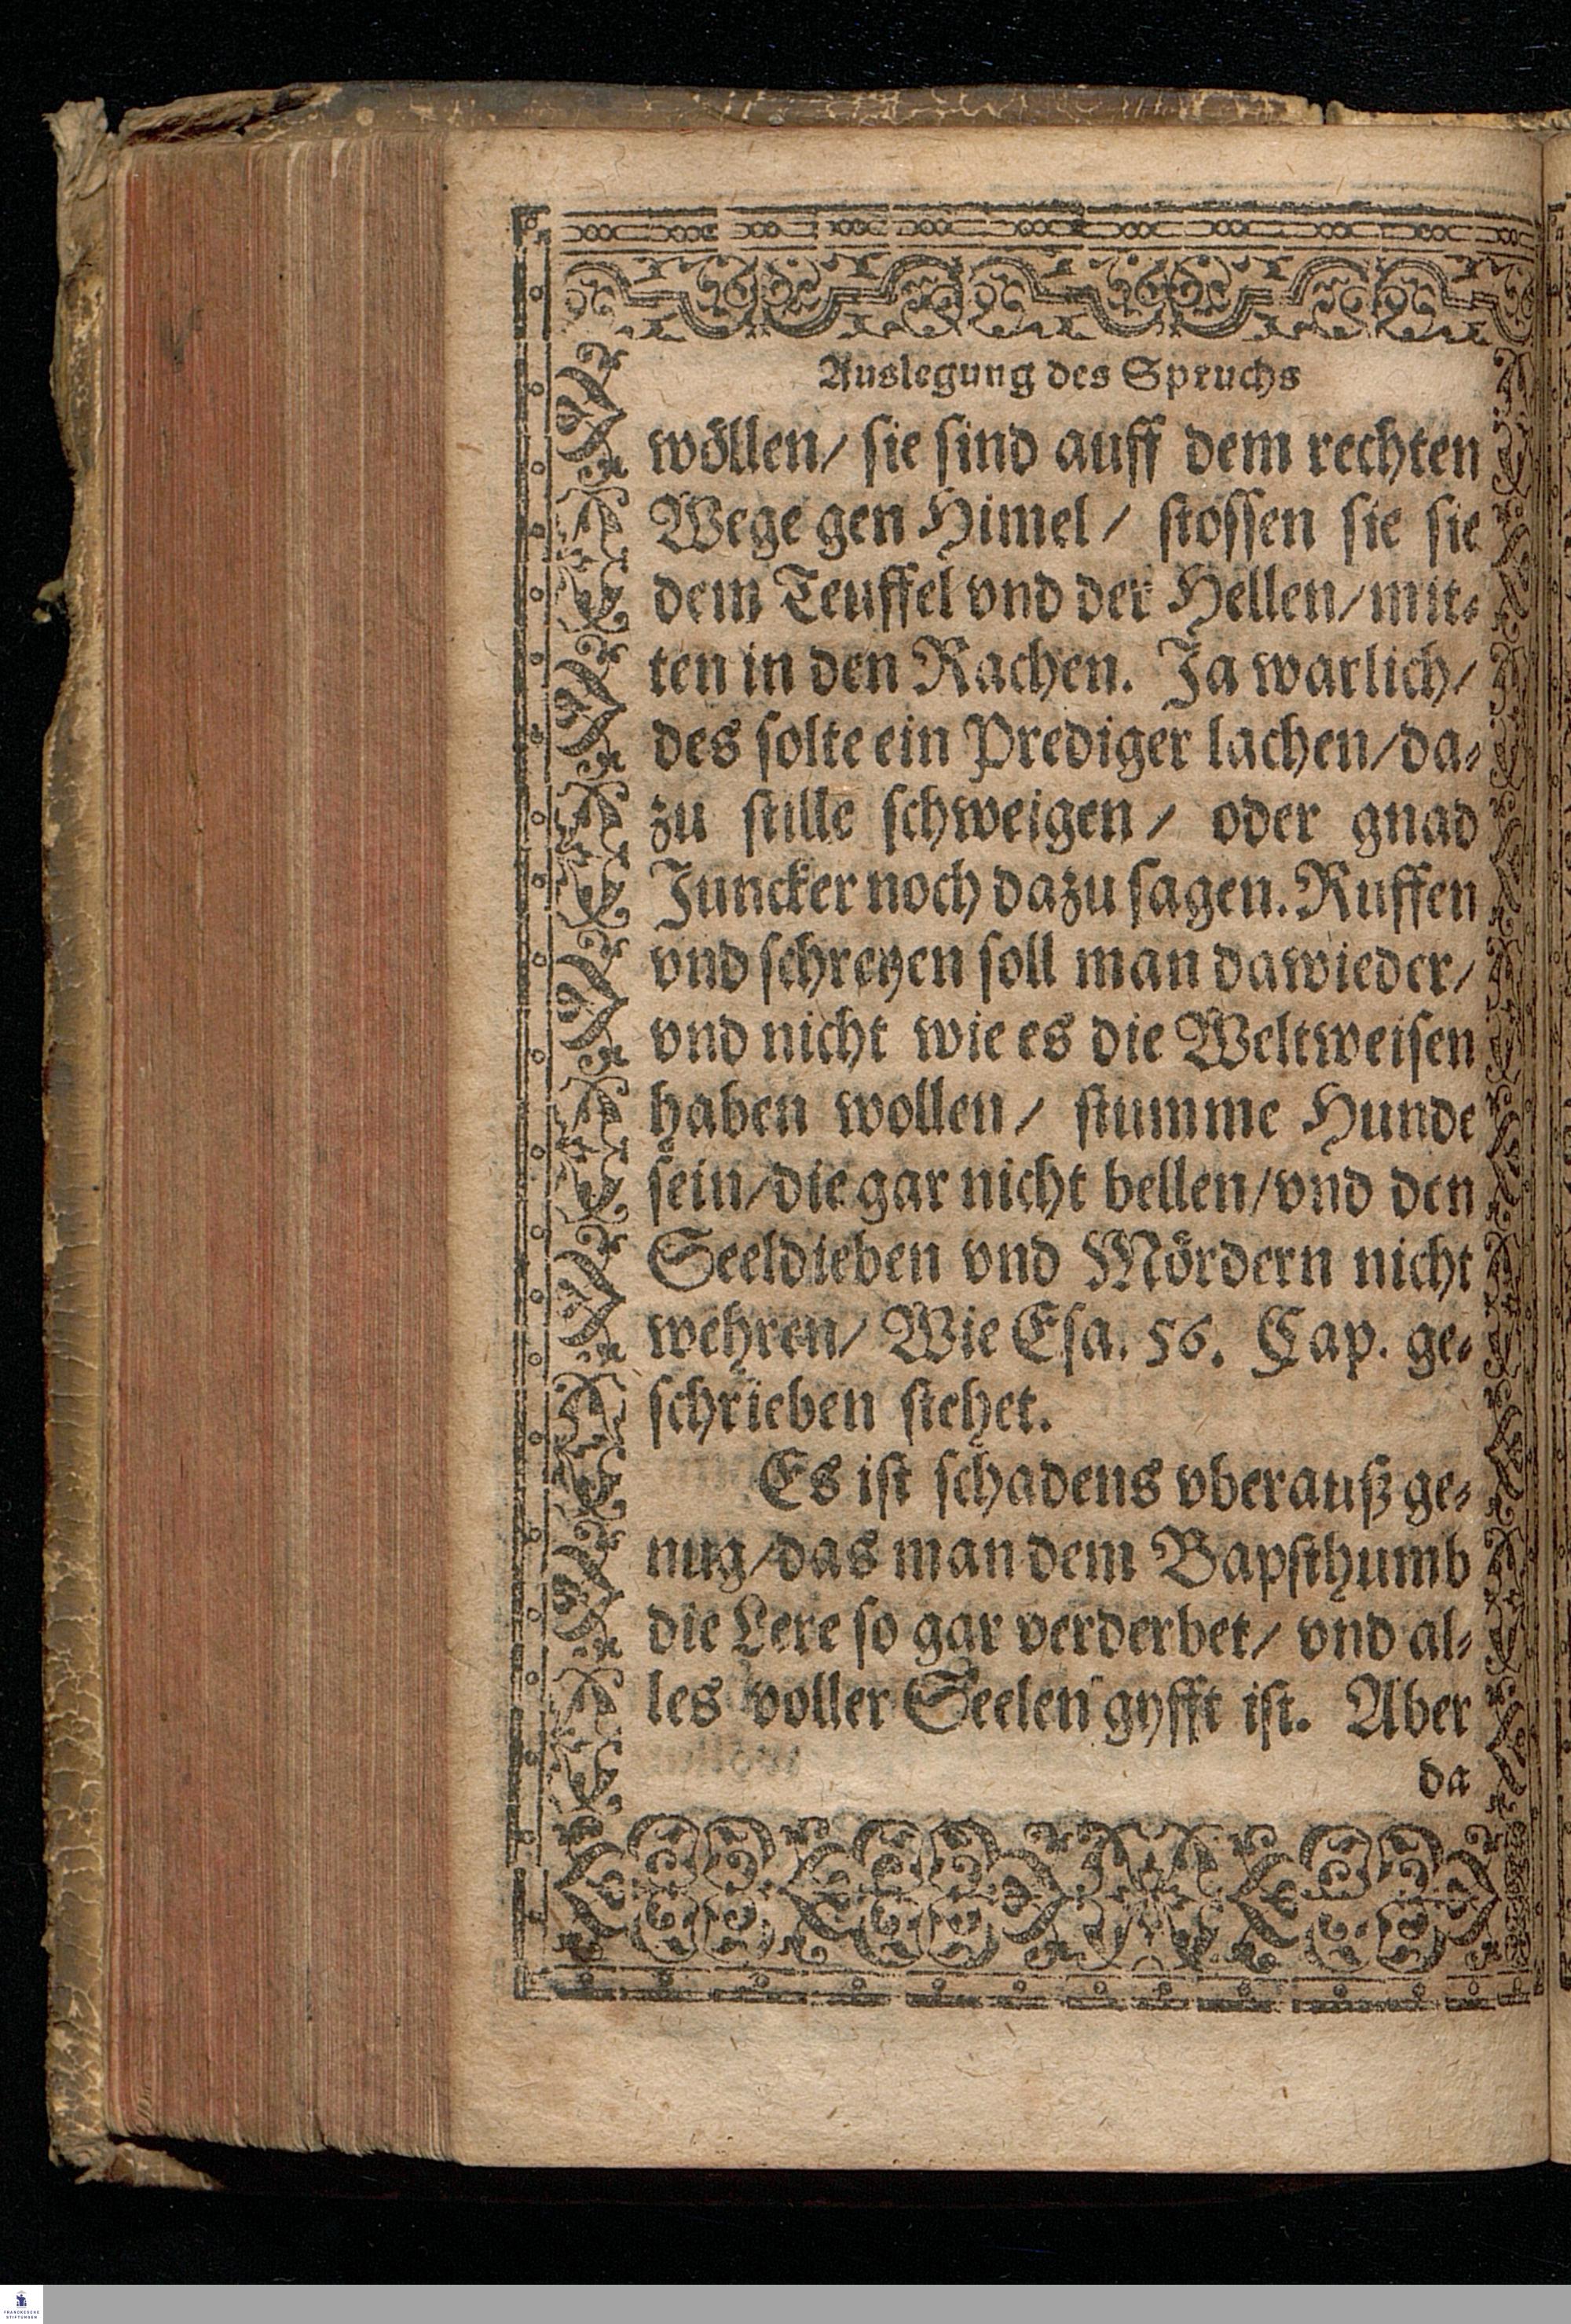 Auslegung des Spruchs
wöllen/ sie sind auff dem rechten
Wege gen Himel/ stossen sie sie
dem Teuffel vnd der Hellen/mit-
ten in den Rachen. Ja warlich/
des solte ein Prediger lachen/da-
zu stille schweigen/ oder gnad
Juncker noch dazu sagen. Ruffen
vnd schreyen soll man dawieder/
vnd nicht wie es die Weltweisen
haben wollen/ stumme Hunde
sein/die gar nicht bellen/vnd den
Seeldieben vnd Mördern nicht
wehren/ Wie Esa. 56. Cap. ge-
schrieben stehet.
Es ist schadens vberauß ge-
nug/das man dem Bapsthumb
die Lere so gar verderbet/ vnd al-
les voller Seelen gyfft ist. Aber
da
FRANCKESCHE
STIFTUNGEN